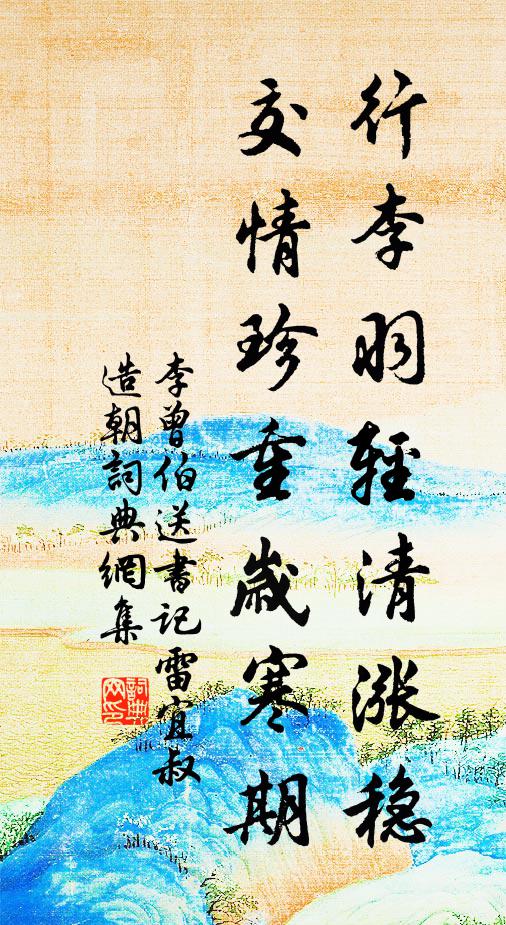 行李羽輕清漲稳
交情珍重歲寒期
李曾伯送書记雷宜叔
造朝詞典網集
詞典网印